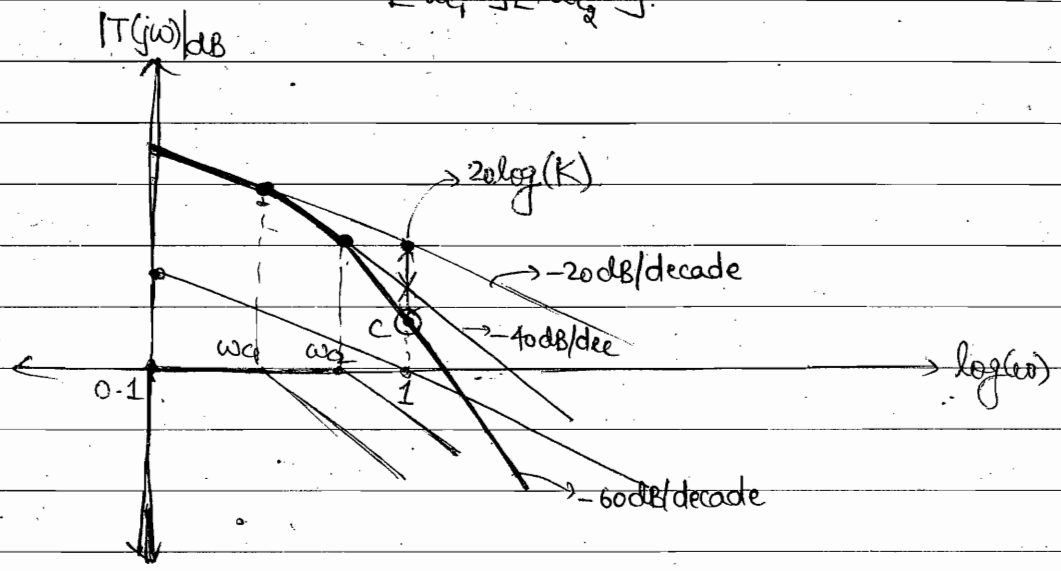 |T(jω)|dB
20log(K)
-20dB/decade
C
-40dB/dec
ωc1
ωc2
0.1
1
log(ω)
-60dB/decade